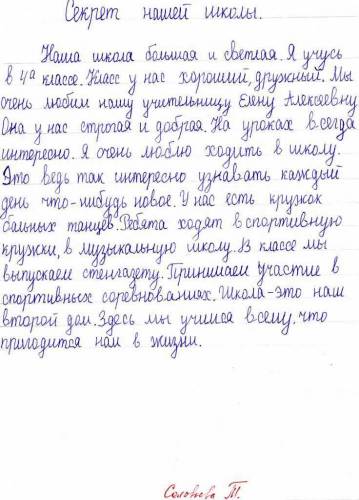 Секрет нашей школы.
Наша школа большая и светлая. Я учусь
в 4а классе. Класс у нас хороший, дружный. Мы
очень любим нашу учительницу Елену Алексеевну
Она у нас строгая и добрая. На уроках всегда
интересно. Я очень люблю ходить в школу.
Это ведь так интересно узнавать каждый
день что-нибудь новое. У нас есть кружок
бальных танцев. Ребята ходят в спортивную
кружки, в музыкальную школу. В классе мы
выпускаем стенгазету. Принимаем участие в
спортивных соревнованиях. Школа-это наш
второй дом. Здесь мы учимся всему, что
пригодится нам в жизни.
Соловьева Т.